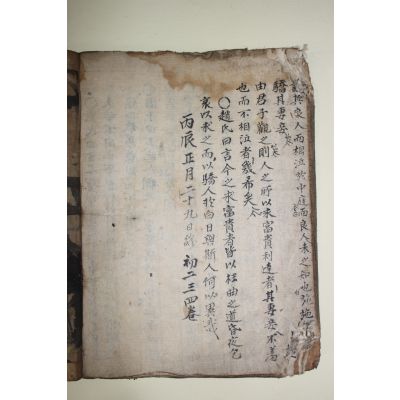 其良人而相泣於中庭而良人未之知也施施
驕其妻妾
由君子觀之則人之所以求富貴利達者其妻妾不羞
也而不相泣者幾希矣
○趙氏曰言今之求富貴者皆以枉曲之道昏夜乞
哀以求之而以驕人於白日與斯人何以異哉
丙辰正月二十九日 初二三四卷